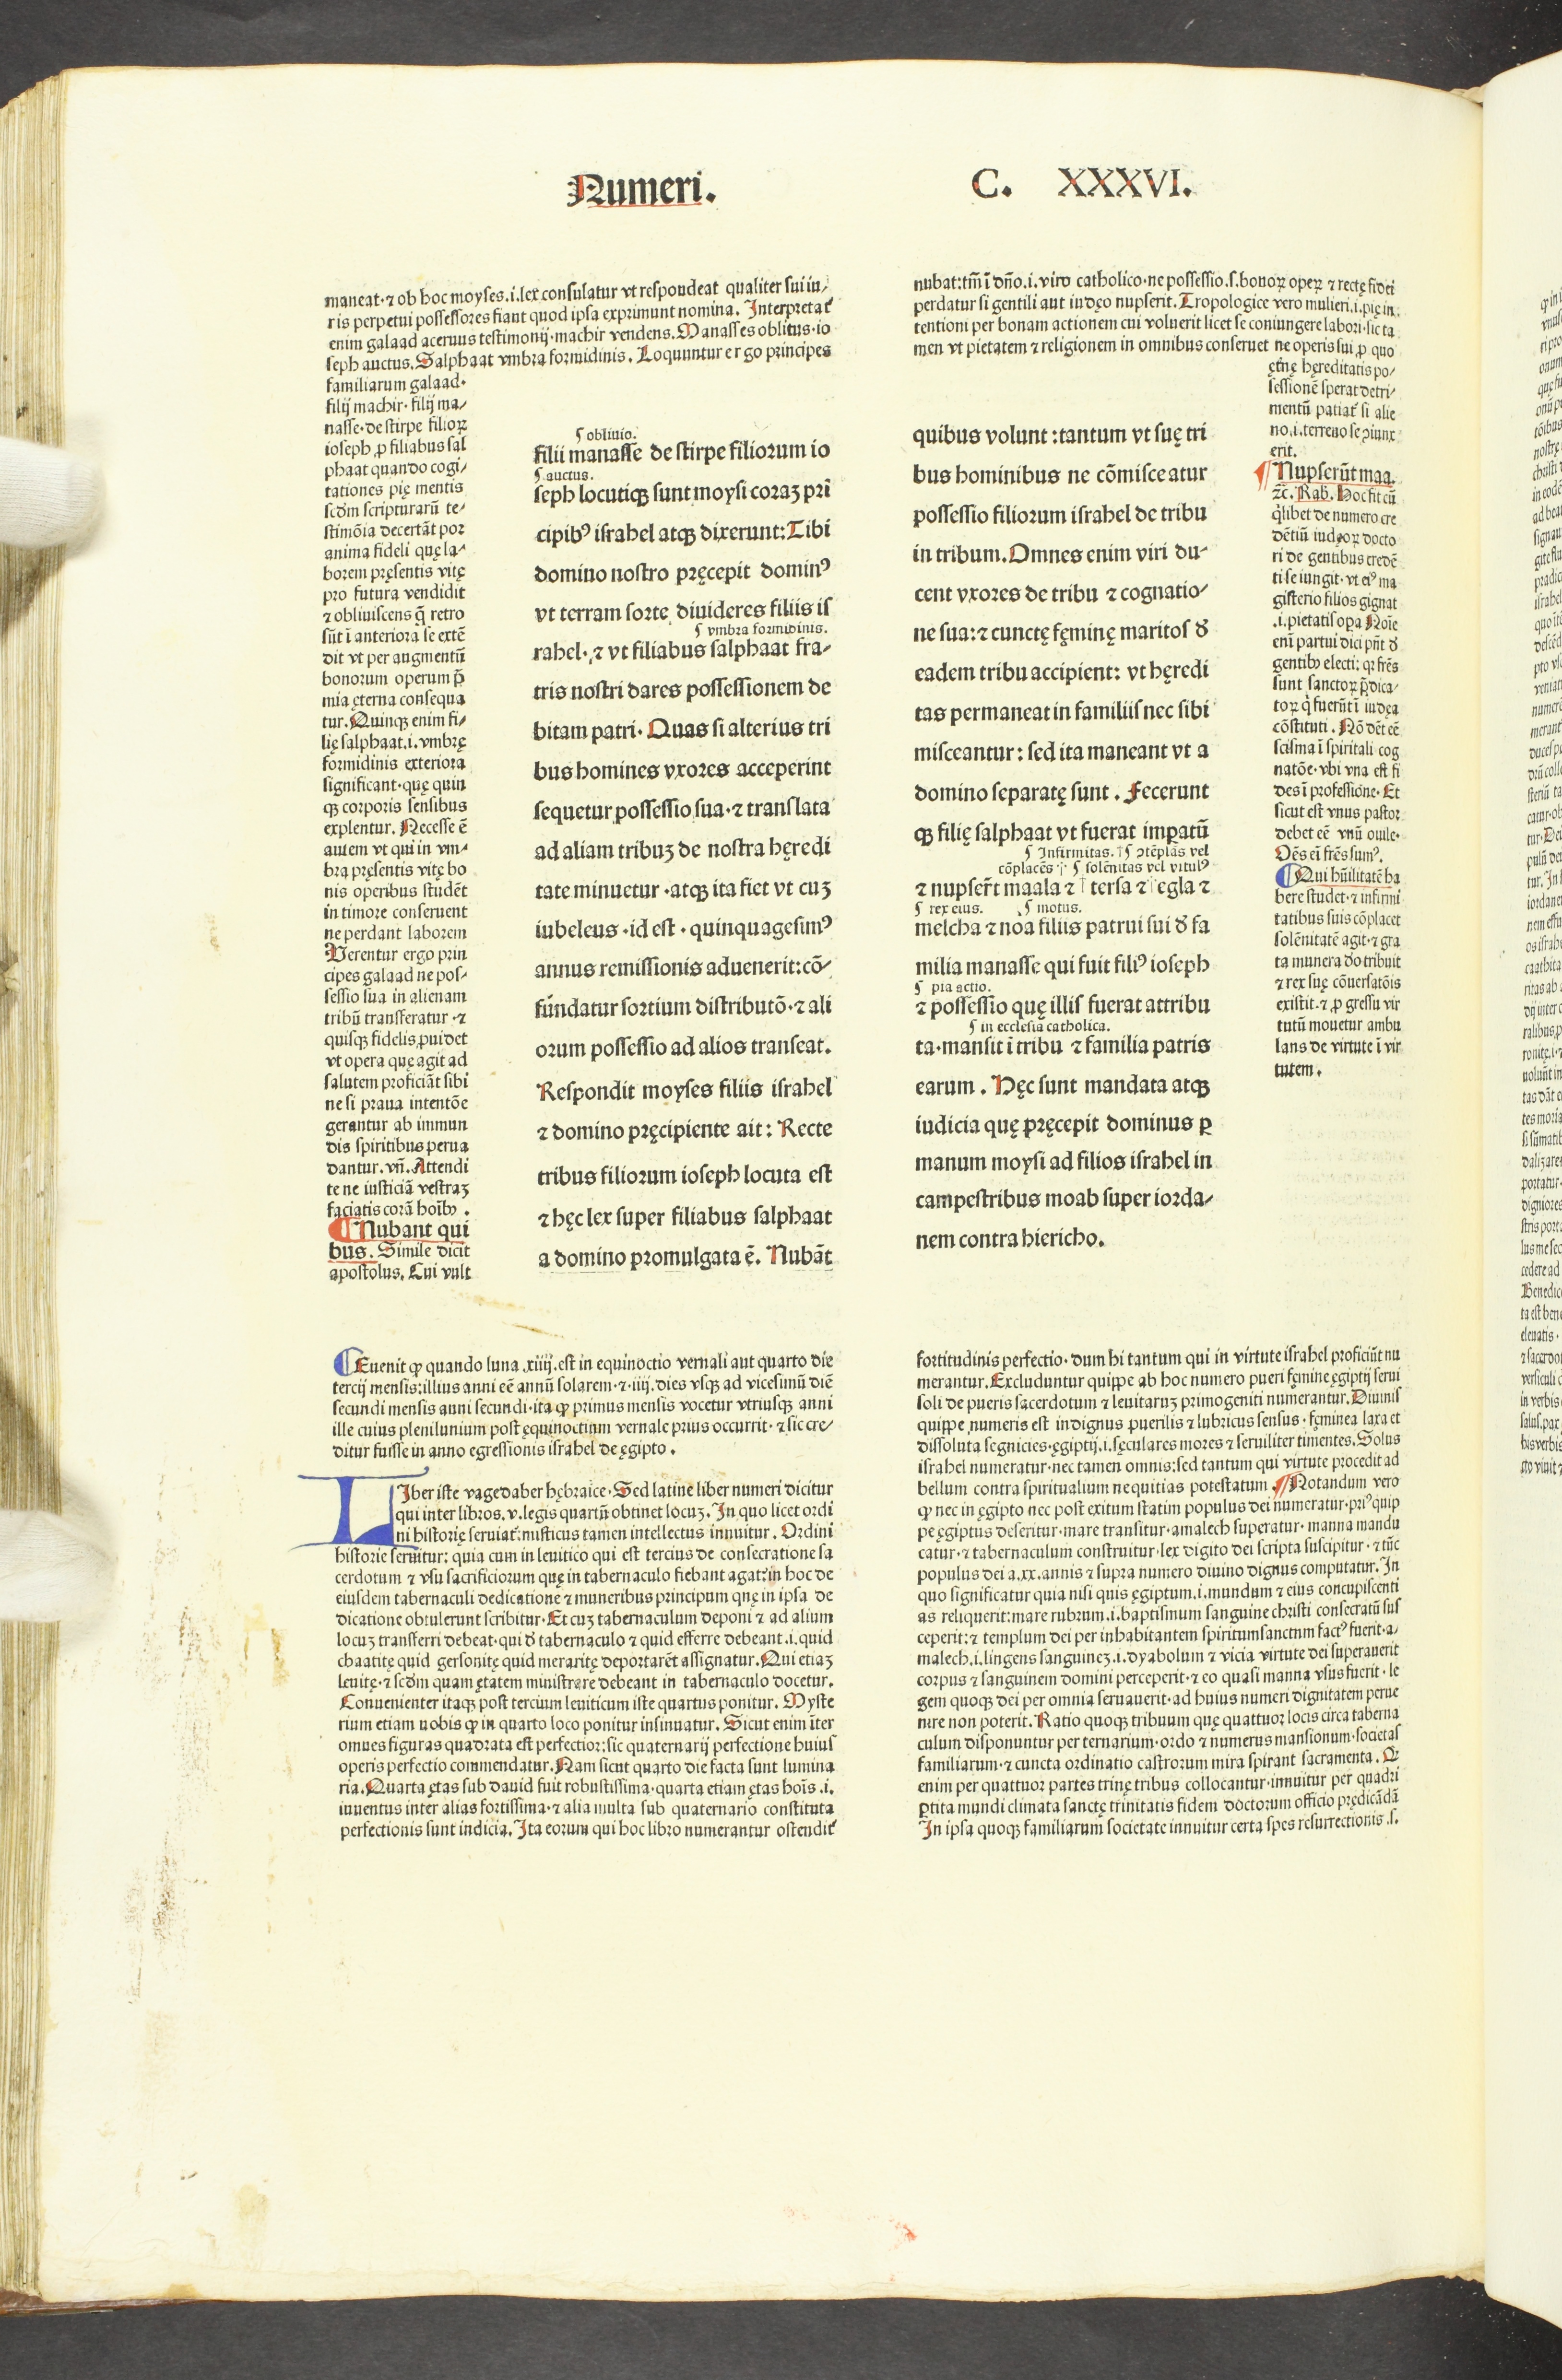 Numeri.
C. XXXVI.
maneat·⁊ ob hoc moyses.i.lex consulatur vt respondeat qualiter sui iu⸗
ris perpetui possessores fiant quod ipsa exprimunt nomina. Interpretat᷑
enim galaad aceruus testimonij·machir vendens. Manasses oblitus·io
seph auctus. Salphaat vmbra formidinis. Loquuntur ergo principes
familiarum galaad·
filij machir· filij ma⸗
nasse·de stirpe filioꝝ
ioseph ꝓ filiabus sal
phaat quando cogi⸗
tationes pię mentis
scd̃m scripturarũ te⸗
stimõia decertãt por
anima fideli quę la⸗
borem pręsentis vitę
pro futura vendidit
⁊ obliuiscens q̃ retro
sũt ĩ anteriora se extẽ
dit vt per augmentũ
bonorum operum p̃
mia ęterna consequa
tur. Quinqꝫ enim fi⸗
lię salphaat.i.vmbrę
formidinis exteriora
significant·quę quin
qꝫ corporis sensibus
explentur. Necesse ẽ
autem vt qui in vm⸗
bra pręsentis vitę bo
nis operibus studẽt
in timore conseruent
ne perdant laborem
Verentur ergo prin
cipes galaad ne pos⸗
sessio sua in alienam
tribũ transferatur ·⁊
quisqꝫ fidelis ꝓuidet
vt opera quę agit ad
salutem proficiãt sibi
ne si praua intentõe
gerantur ab immun
dis spiritibus perua
dantur. vñ. Attendi
te ne iusticiã vestraꝫ
faciatis corã hoĩbꝰ.
¶ Nubant qui
bus. Simile dicit
apostolus. Cui vult
¶ obliuio.
filii manasse de stirpe filiorum io
¶ auctus.
seph locutiqꝫ sunt moysi coraꝫ prĩ
cipibꝰ israhel atqꝫ dixerunt: Tibi
domino nostro pręcepit dominꝰ
vt terram sorte diuideres filiis is
¶ vmbra formidinis.
rahel·⁊ vt filiabus salphaat fra⸗
tris nostri dares possessionem de
bitam patri· Quas si alterius tri
bus homines vxores acceperint
sequetur possessio sua·⁊ translata
ad aliam tribuꝫ de nostra hęredi
tate minuetur ·atqꝫ ita fiet vt cuꝫ
iubeleus ·id est · quinquagesimꝰ
annus remissionis aduenerit: cõ⸗
fũndatur sortium distributõ·⁊ ali
orum possessio ad alios transeat.
Respondit moyses filiis israhel
⁊ domino pręcipiente ait: Recte
tribus filiorum ioseph locuta est
⁊ hęc lex super filiabus salphaat
a domino promulgata ẽ. Nubãt
nubat: tm̃ ĩ dño.i.viro catholico·ne possessio.s.bonoꝝ opeꝝ ⁊ rectę fidei
perdatur si gentili aut iudęo nupserit. Tropologice vero mulieri.i.pię in⸗
tentioni per bonam actionem cui voluerit licet se coniungere labori·sic ta
men vt pietatem ⁊ religionem in omnibus conseruet ne operis sui ꝓ quo
quibus volunt : tantum vt suę tri
bus hominibus ne cõmisceatur
possessio filiorum israhel de tribu
in tribum. Omnes enim viri du⸗
cent vxores de tribu ⁊ cognatio⸗
ne sua: ⁊ cunctę fęminę maritos ð
eadem tribu accipient: vt hęredi
tas permaneat in familiis nec sibi
misceantur : sed ita maneant vt a
domino separatę sunt . Fecerunt
qꝫ filię salphaat vt fuerat impatũ
¶ Infirmitas. ¶ ↄtẽplãs vel
cõplacẽs · ¶ solẽnitas vel vitulꝰ
⁊ nupser̃t maala ⁊ tersa ⁊ egla ⁊
¶ rex eius. ¶ motus.
melcha ⁊ noa filiis patrui sui ð fa
milia manasse qui fuit filiꝰ ioseph
¶ pia actio.
⁊ possessio quę illis fuerat attribu
¶ in ecclesia catholica.
ta·mansit ĩ tribu ⁊ familia patris
earum . Hęc sunt mandata atqꝫ
iudicia quę pręcepit dominus ꝑ
manum moysi ad filios israhel in
campestribus moab super iorda⸗
nem contra hiericho.
ęt̃nę hęreditatis po⸗
sessionẽ sperat detri⸗
mentũ patiat᷑ si alie
no.i.terreno se ↄiunx
erit.
¶ Nupserũt maa.
⁊c̃. Rab. Hoc fit cũ
q̃libet de numero cre
dẽtiũ iudęoꝝ docto
ri de gentibus credẽ
ti se iungit·vt eiꝰ ma
gisterio filios gignat
.i.pietatis oꝑa Noĩe
enĩ partui dici pñt ð
gentibꝰ electi: qꝛ fr̃es
sunt sanctoꝝ p̃dica⸗
toꝝ q̃ fuerũt ĩ iudęa
cõstituti . Nõ dẽt eẽ
scisma ĩ spiritali cog
natõe·vbi vna est fi
des ĩ professione· Et
sicut est vnus pastor
debet eẽ vnũ ouile·
Oẽs eĩ fr̃es sumꝰ.
¶ Qui hũilitatẽ ha
bere studet·⁊ infirmi
tatibus suis cõplacet
solẽnitatẽ agit·⁊ gra
ta munera dõ tribuit
⁊ rex suę cõuersatõis
existit·⁊ ꝓgressu vir
tutũ mouetur ambu
lans de virtute ĩ vir
tutem .
¶ Euenit ꝙ quando luna .xiiij.est in equinoctio vernali aut quarto die
tercij mensis: illius anni eẽ annũ solarem·⁊·iiij.dies vsqꝫ ad vicesimũ diẽ
secundi mensis anni secundi·ita ꝙ primus mensis vocetur vtriusqꝫ anni
ille cuius plenilunium post ęquinoctium vernale prius occurrit·⁊ sic cre⸗
ditur fuisse in anno egressionis israhel de ęgipto .
LIber iste vagedaber hębraice· Sed latine liber numeri dicitur
qui inter libros.v.legis quartũ obtinet locuꝫ. In quo licet ordi
ni historię seruiat᷑: misticus tamen intellectus innuitur . Ordini
historie seruitur: quia cum in leuitico qui est tercius de consecratione sa
cerdotum ⁊ vsu sacrificiorum quę in tabernaculo fiebant agat᷑: in hoc de
eiusdem tabernaculi dedicatione ⁊ muneribus principum quę in ipsa de
dicatione obtulerunt scribitur· Et cuꝫ tabernaculum deponi ⁊ ad alium
locuꝫ transferri debeat·qui ð tabernaculo ⁊ quid efferre debeant.i.quid
chaatitę quid gersonitę quid meraritę deportarẽt assignatur. Qui etiaꝫ
leuitę·⁊ scd̃m quam ętatem ministrare debeant in tabernaculo docetur.
Conuenienter itaqꝫ post tercium leuiticum iste quartus ponitur. Myste
rium etiam nobis ꝙ in quarto loco ponitur insinuatur. Sicut enim ĩter
omnes figuras quadrata est perfectior: sic quaternarij perfectione huius
operis perfectio commendatur. Nam sicut quarto die facta sunt lumina
ria. Quarta ętas sub dauid fuit robustissima·quarta etiam ętas hoĩs .i.
iuuentus inter alias fortissima·⁊ alia multa sub quaternario constituta
perfectionis sunt indicia. Ita eorum qui hoc libro numerantur ostendit᷑
fortitudinis perfectio·dum hi tantum qui in virtute israhel proficiũt nu
merantur. Excluduntur quippe ab hoc numero pueri fęmine ęgiptij serui
soli de pueris sacerdotum ⁊ leuitaruꝫ primogeniti numerantur. Diuinis
quippe numeris est indignus puerilis ⁊ lubricus sensus · fęminea laxa et
dissoluta segnicies·ęgiptij.i.sęculares mores ⁊ seruiliter timentes. Solus
israhel numeratur·nec tamen omnis: sed tantum qui virtute procedit ad
bellum contra spiritualium nequitias potestatum . ¶ Notandum vero
ꝙ nec in ęgipto nec post exitum statim populus dei numeratur·priꝰ quip
pe ęgiptus deseritur·mare transitur·amalech superatur·manna mandu
catur·⁊ tabernaculum construitur·lex digito dei scripta suscipitur·⁊ tũc
populus dei a.xx.annis ⁊ supra numero diuino dignus computatur. In
quo significatur quia nisi quis ęgiptum.i.mundum ⁊ eius concupiscenti
as reliquerit: mare rubrum.i.baptismum sanguine christi consecratũ sus
ceperit: ⁊ templum dei per inhabitantem spiritumsanctum factꝰ fuerit·a⸗
malech.i.lingens sanguineꝫ.i.dyabolum ⁊ vicia virtute dei superauerit
corpus ⁊ sanguinem domini perceperit·⁊ eo quasi manna vsus fuerit·le
gem quoqꝫ dei per omnia seruauerit·ad huius numeri dignitatem perue
nire non poterit. Ratio quoqꝫ tribuum quę quattuor locis circa taberna
culum disponuntur per ternarium·ordo ⁊ numerus mansionum·societas
familiarum·⁊ cuncta ordinatio castrorum mira spirant sacramenta. Qꝛ
enim per quattuor partes trinę tribus collocantur·innuitur per quadri
ꝑtita mundi climata sanctę trinitatis fidem doctorum officio prędicãdã
In ipsa quoqꝫ familiarum societate innuitur certa spes resurrectionis .s.